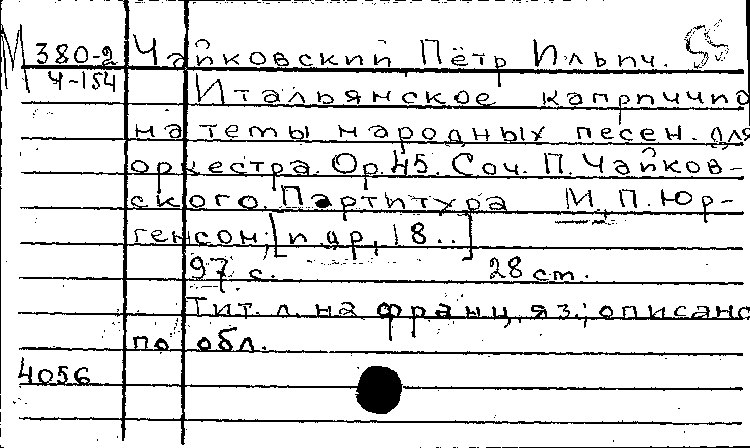 М 380-2 Чайковский, Пётр Ильич. 55
Ч-154 Итальянское каприччио
на темы народных песен. для
оркестра. Op.45. Соч. П. Чайков-
ского. Партитура М., П. Юр-
генсон, [п ар, 18..]
97 с. 28 cm.
Тит. л. на франц. яз.; описано
по обл.
4056